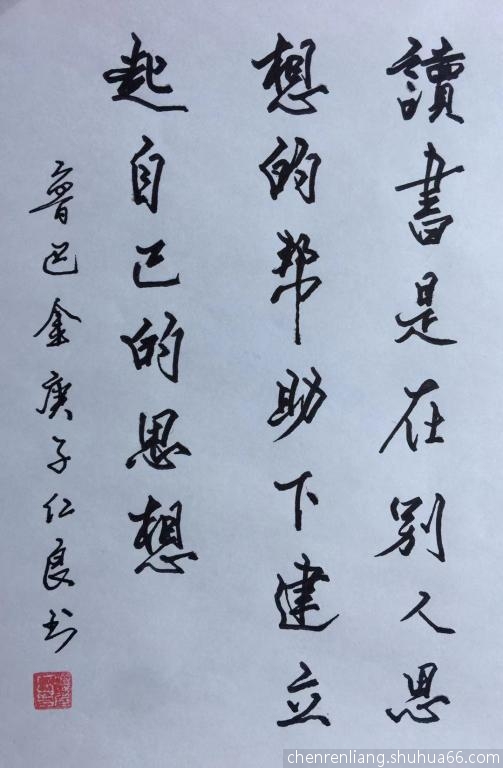 讀書是在别人思
想的帮助下建立
起自己的思想
魯巴金庚子仁良书
chenrenliang.shuhua66.com